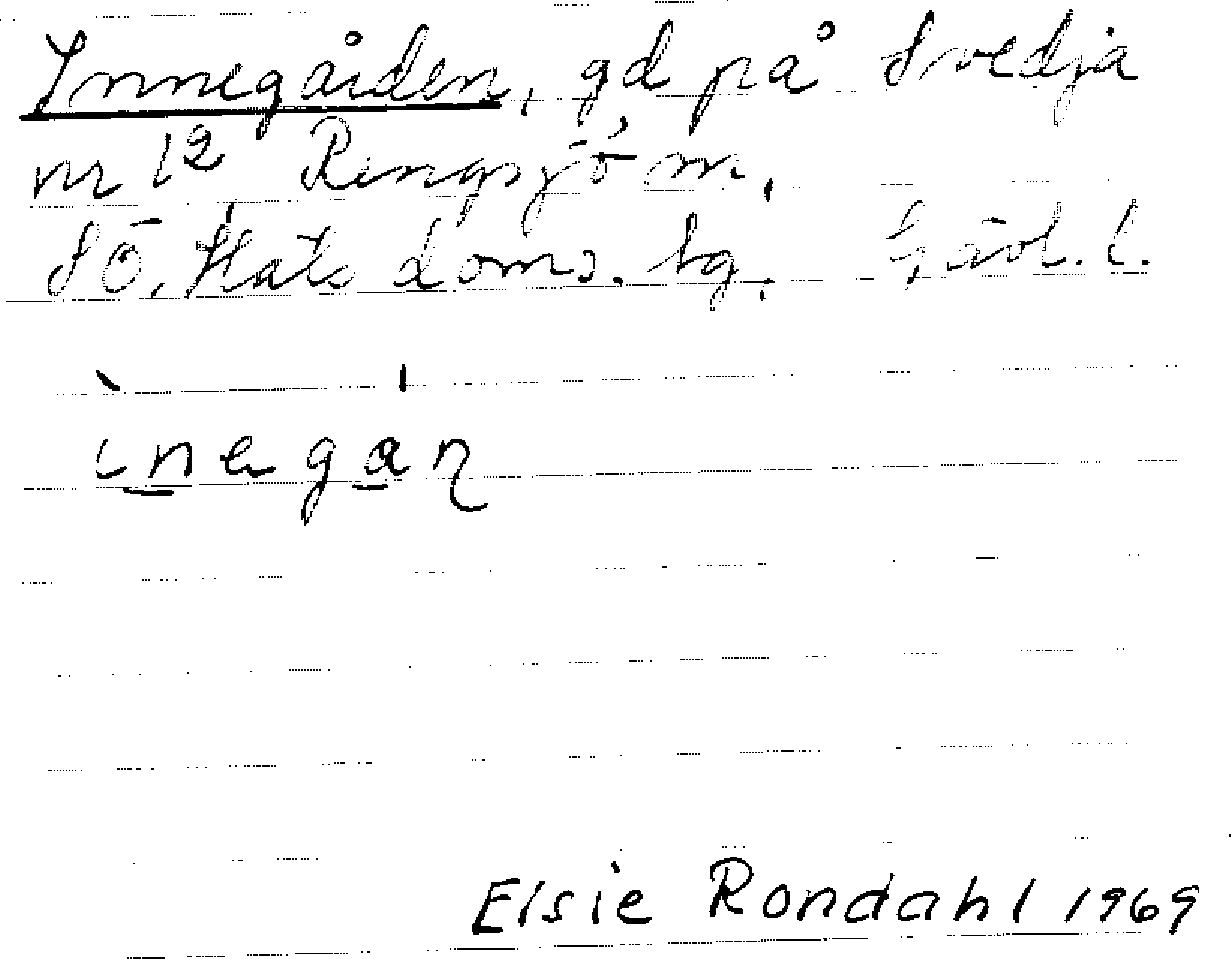 Innegården, gd på Svedja
nr 1² Rengsjö sn,
SÖ. Häls doms. tg. Gävl. l.
ìnegán
Elsie Rondahl 1969